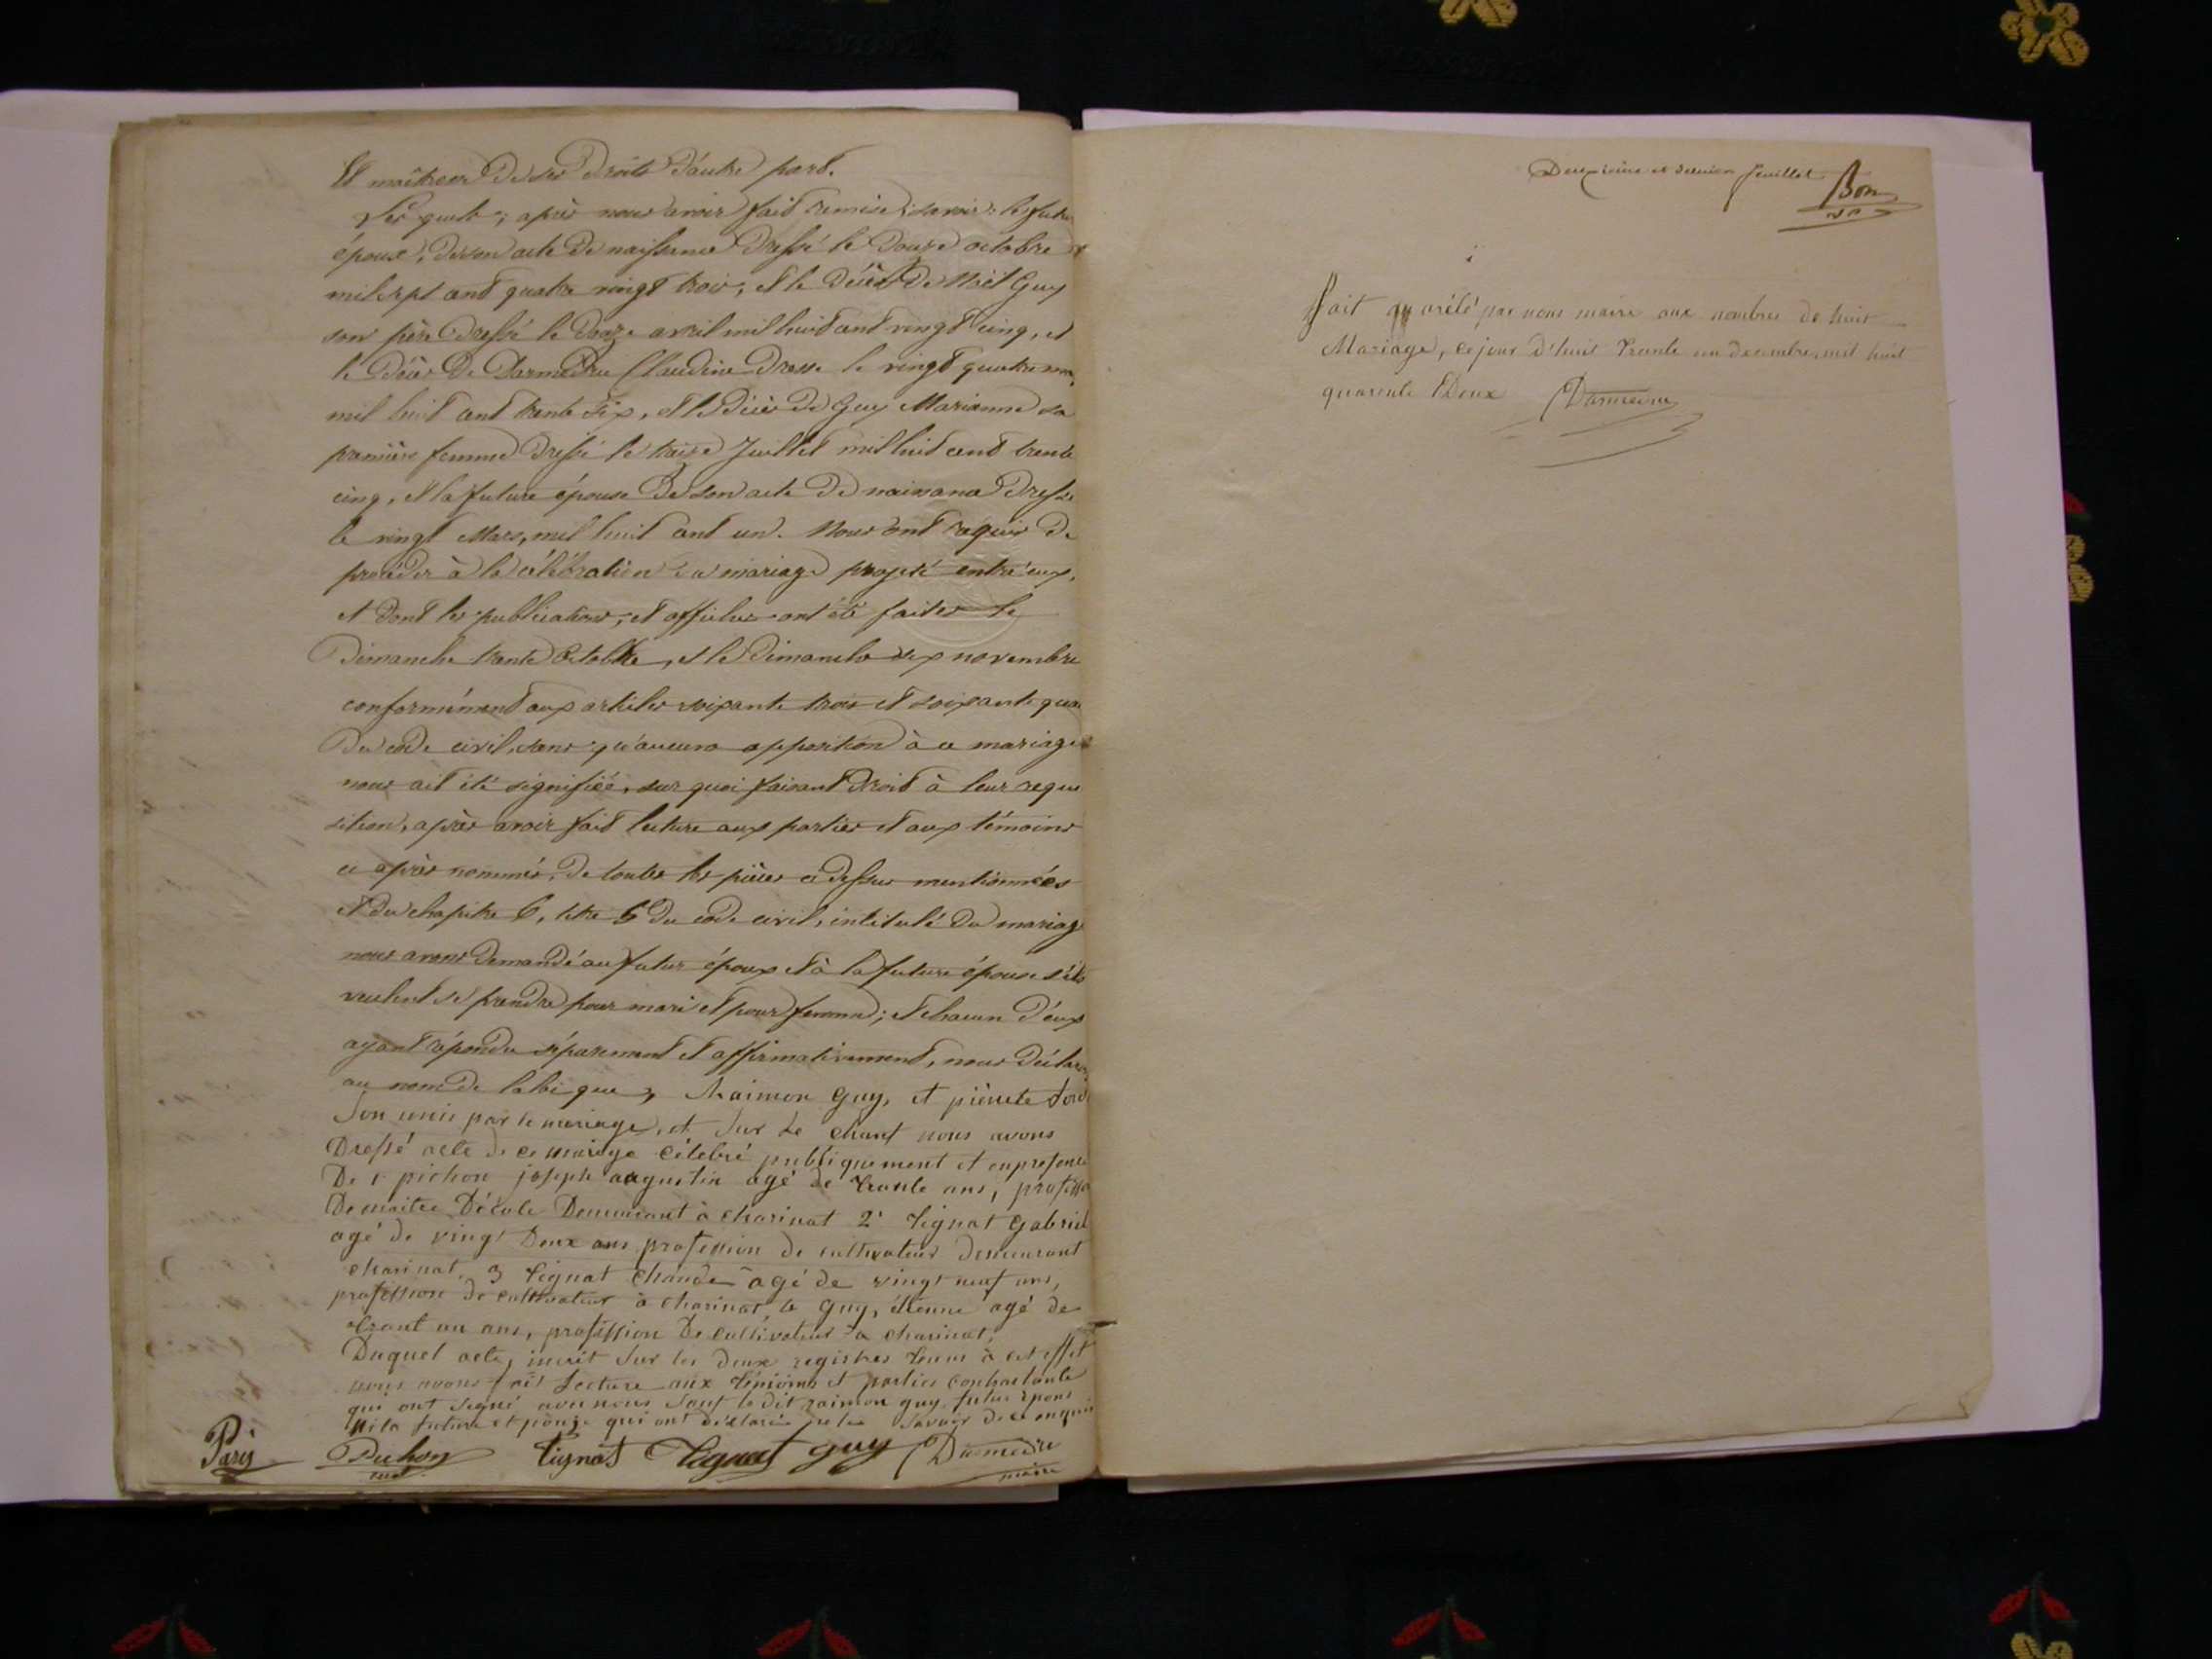 Et maîtresse de ses droits d'autre part.
Les quels; après nous avoir fait remise; savoir: le futur
époux, de son acte de naissance dressé le douze octobre
mil sept cent quatre vingt trois, et le décès de Noël Guy
son père dressé le douze avril mil huit cent vingt cinq, et
le décès de Darmedru Claudine dressé le vingt quatre
mil huit cent trente six, et le décès de Guy Marianne sa
première femme dressé le treize Juillet mil huit cent trente
cinq, et la future épouse de son acte de naissance dressé
le vingt Mars, mil huit cent un. Nous ont requis de
procéder à la célébration du mariage projeté entre eux,
et dont les publications, et affiches ont été faites le
Dimanche trente Octobre, et le Dimanche six novembre
conformément aux articles soixante trois et soixante quat
du code civil, sans qu'aucune opposition à ce mariage
nous ait été signifiée, sur quoi faisant droit à leur requi
sition, après avoir fait lecture aux parties et aux témoins
ci après nommés, de toutes les pièces ci dessus mentionnées
et du chapitre 6, titre 5 du code civil, intitulé du mariage
nous avons demandé au futur époux et à la future épouse s'ils
veulent se prendre pour mari et pour femme; et chacun d'eux
ayant répondu séparement et affirmativement, nous déclarons
au nom de la loi que, Raimon Guy, et pierrette
Son unis par le mariage, et Sur Le Champ nous avons
Dressé acte de ce mariage Célebré publiquement et en presence
De 1 pichon joseph augustin agé de trente ans, profession
De maitre D'école Demeurant à Charinat 2 Tignat Gabriel
agé de vingt Deux ans profession de cultivateur demeurant
charinat, 3 Tignat Claude agé de vingt neuf ans,
profession de cultivateur à charinat 4 Guy, étienne agé de
trent un ans, profession De cultivateur à charinat,
Duquel acte, inscrit Sur les deux registres tenus à cet effet
nous avons fait Lecture aux témoins et parties contractante
qui ont signé avec nous Sauf le dit raimon guy futur Epoux
et la future et qui ont déclaré ne le Savoir de ce enquis
Pary Pichon Tignat Tignat Guy Darmedru
maire
Deuxieme et dernier feuillet Bon
Fait arété par nous maire aux nombre de huit
Mariage, ce jour d'huit trente un decembre mil huit
quarente Deux Darmedru